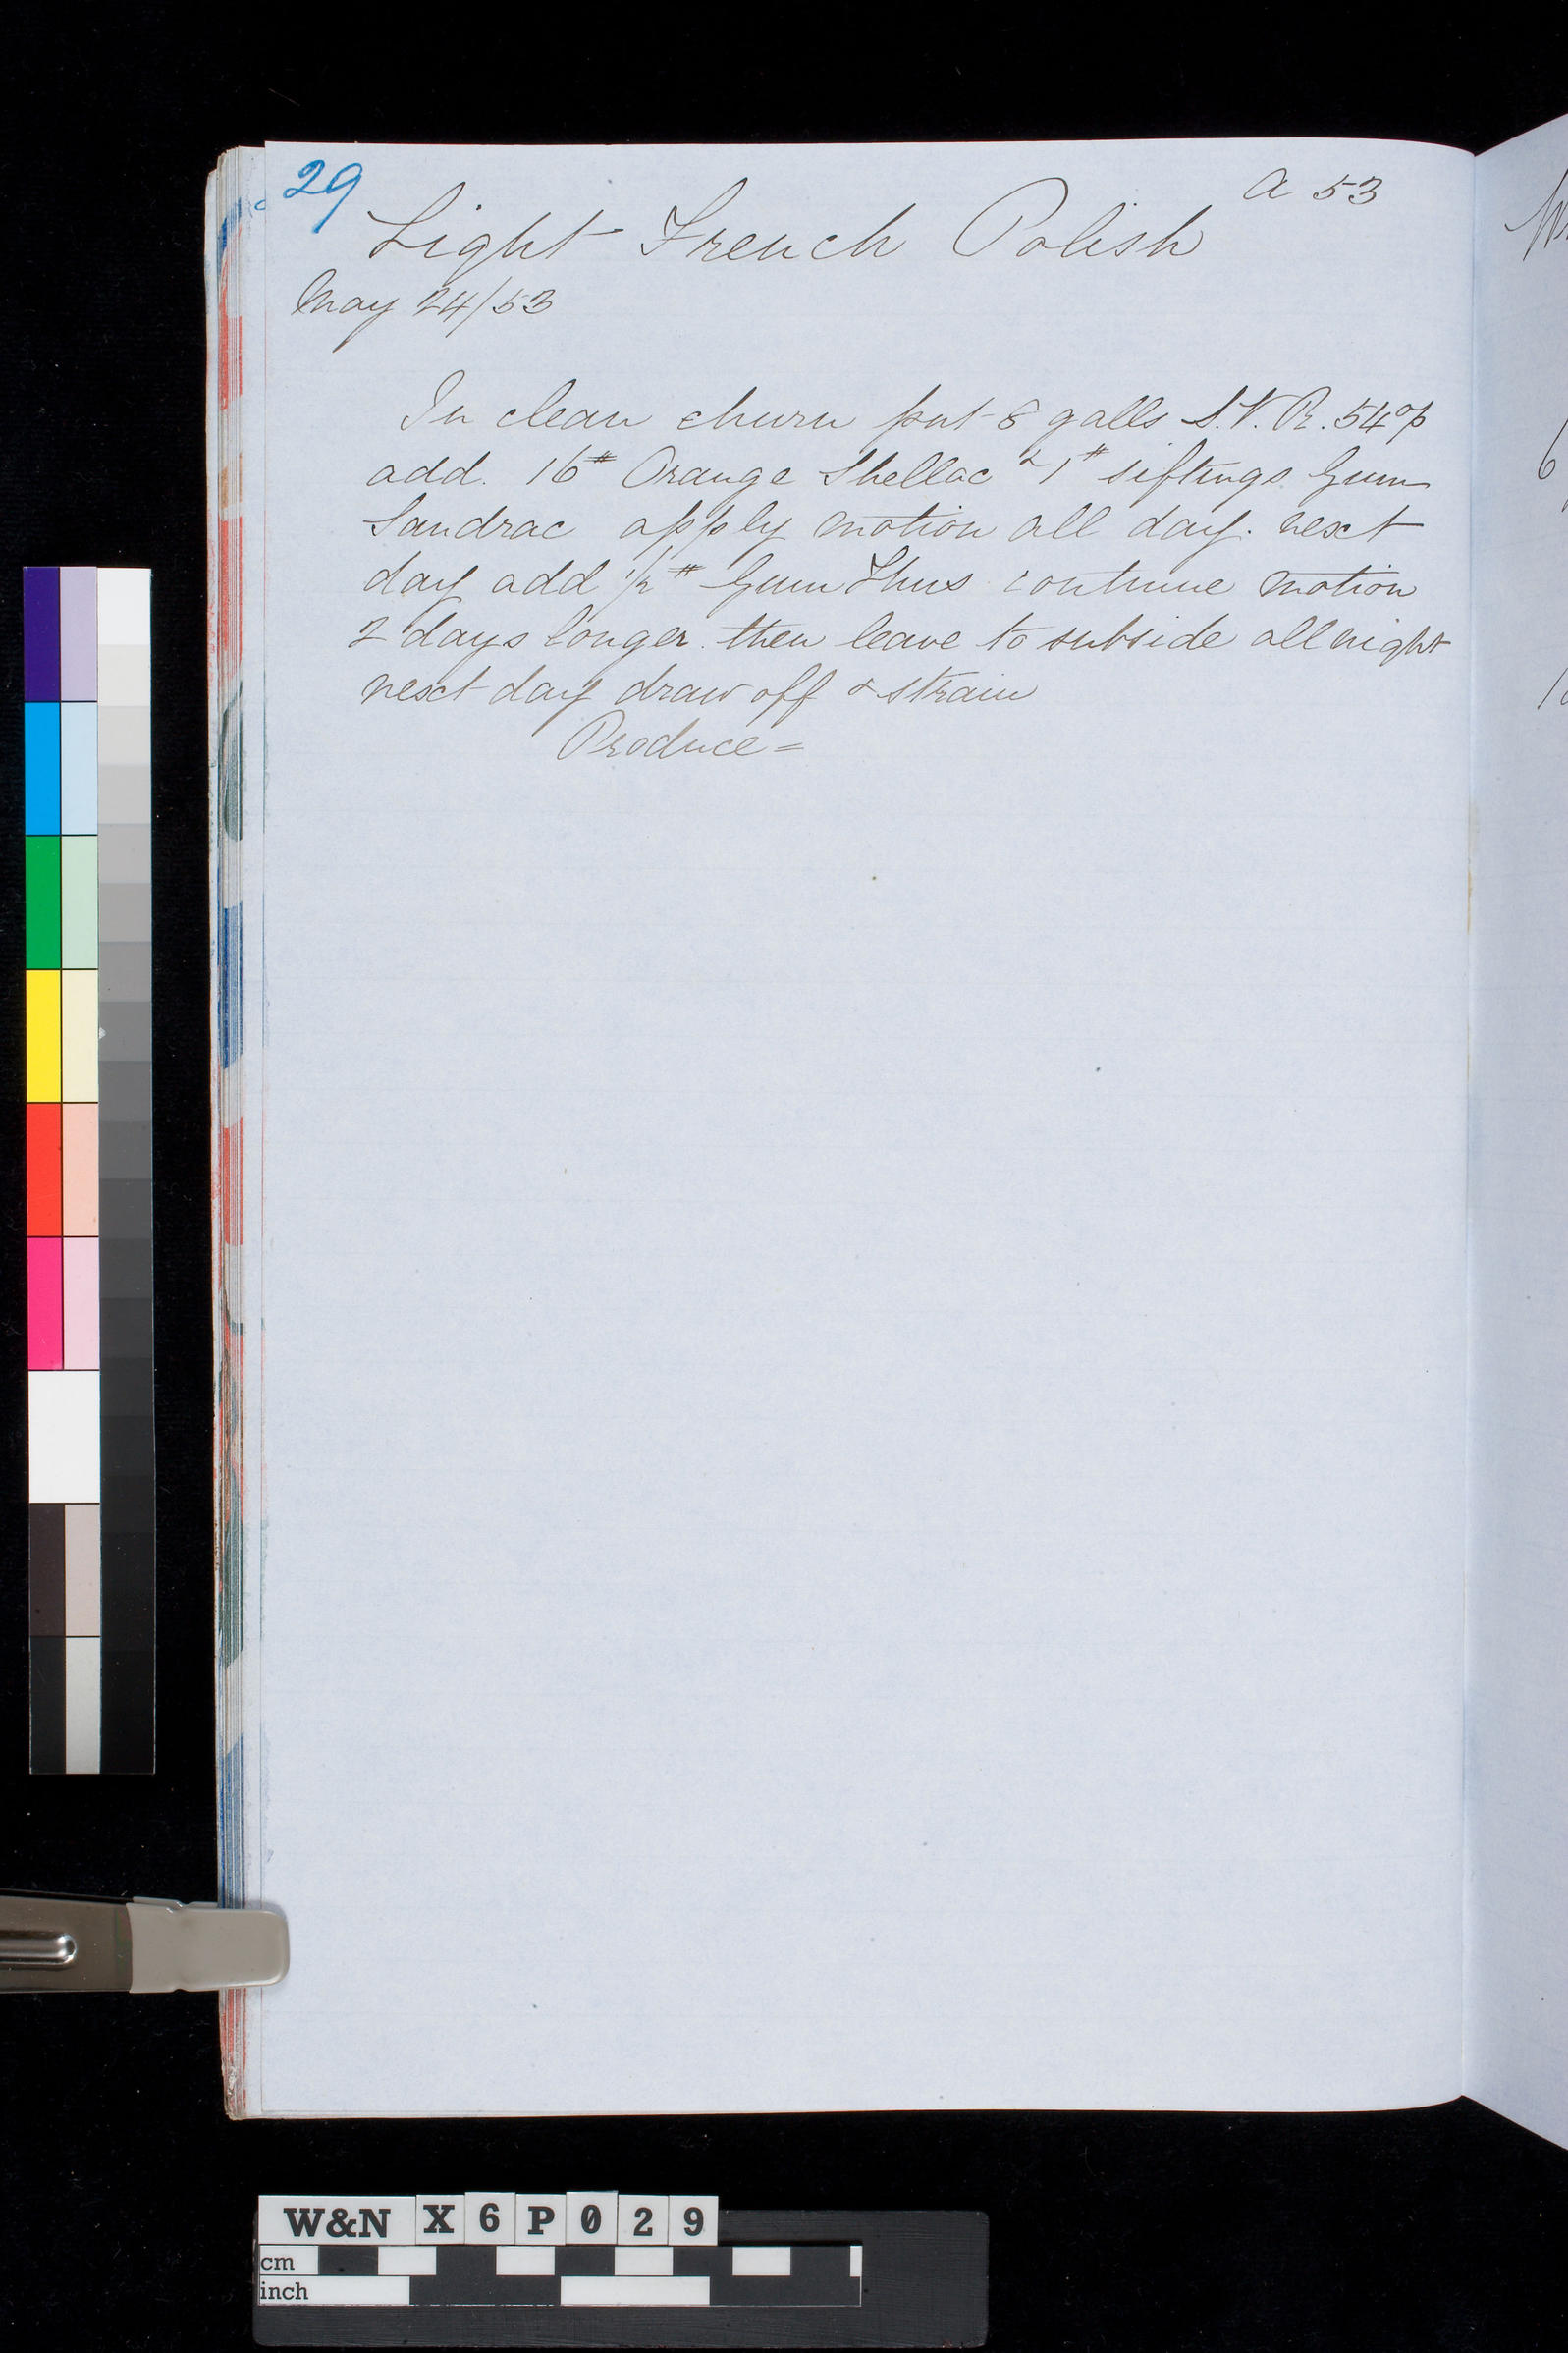 29
a 53
Light French Polish
May 24/53
In clean churn put 8 galls S.V.R. 54op
add. 16# Orange Shellac & 1# siftings Gum
Sandrac apply motion all day. next
day add 1/2# Gum Thus continue motion
2 days longer. then leave to subside all night
next day draw off & strain
Produce =
6
W&N X6P029
cm
inch